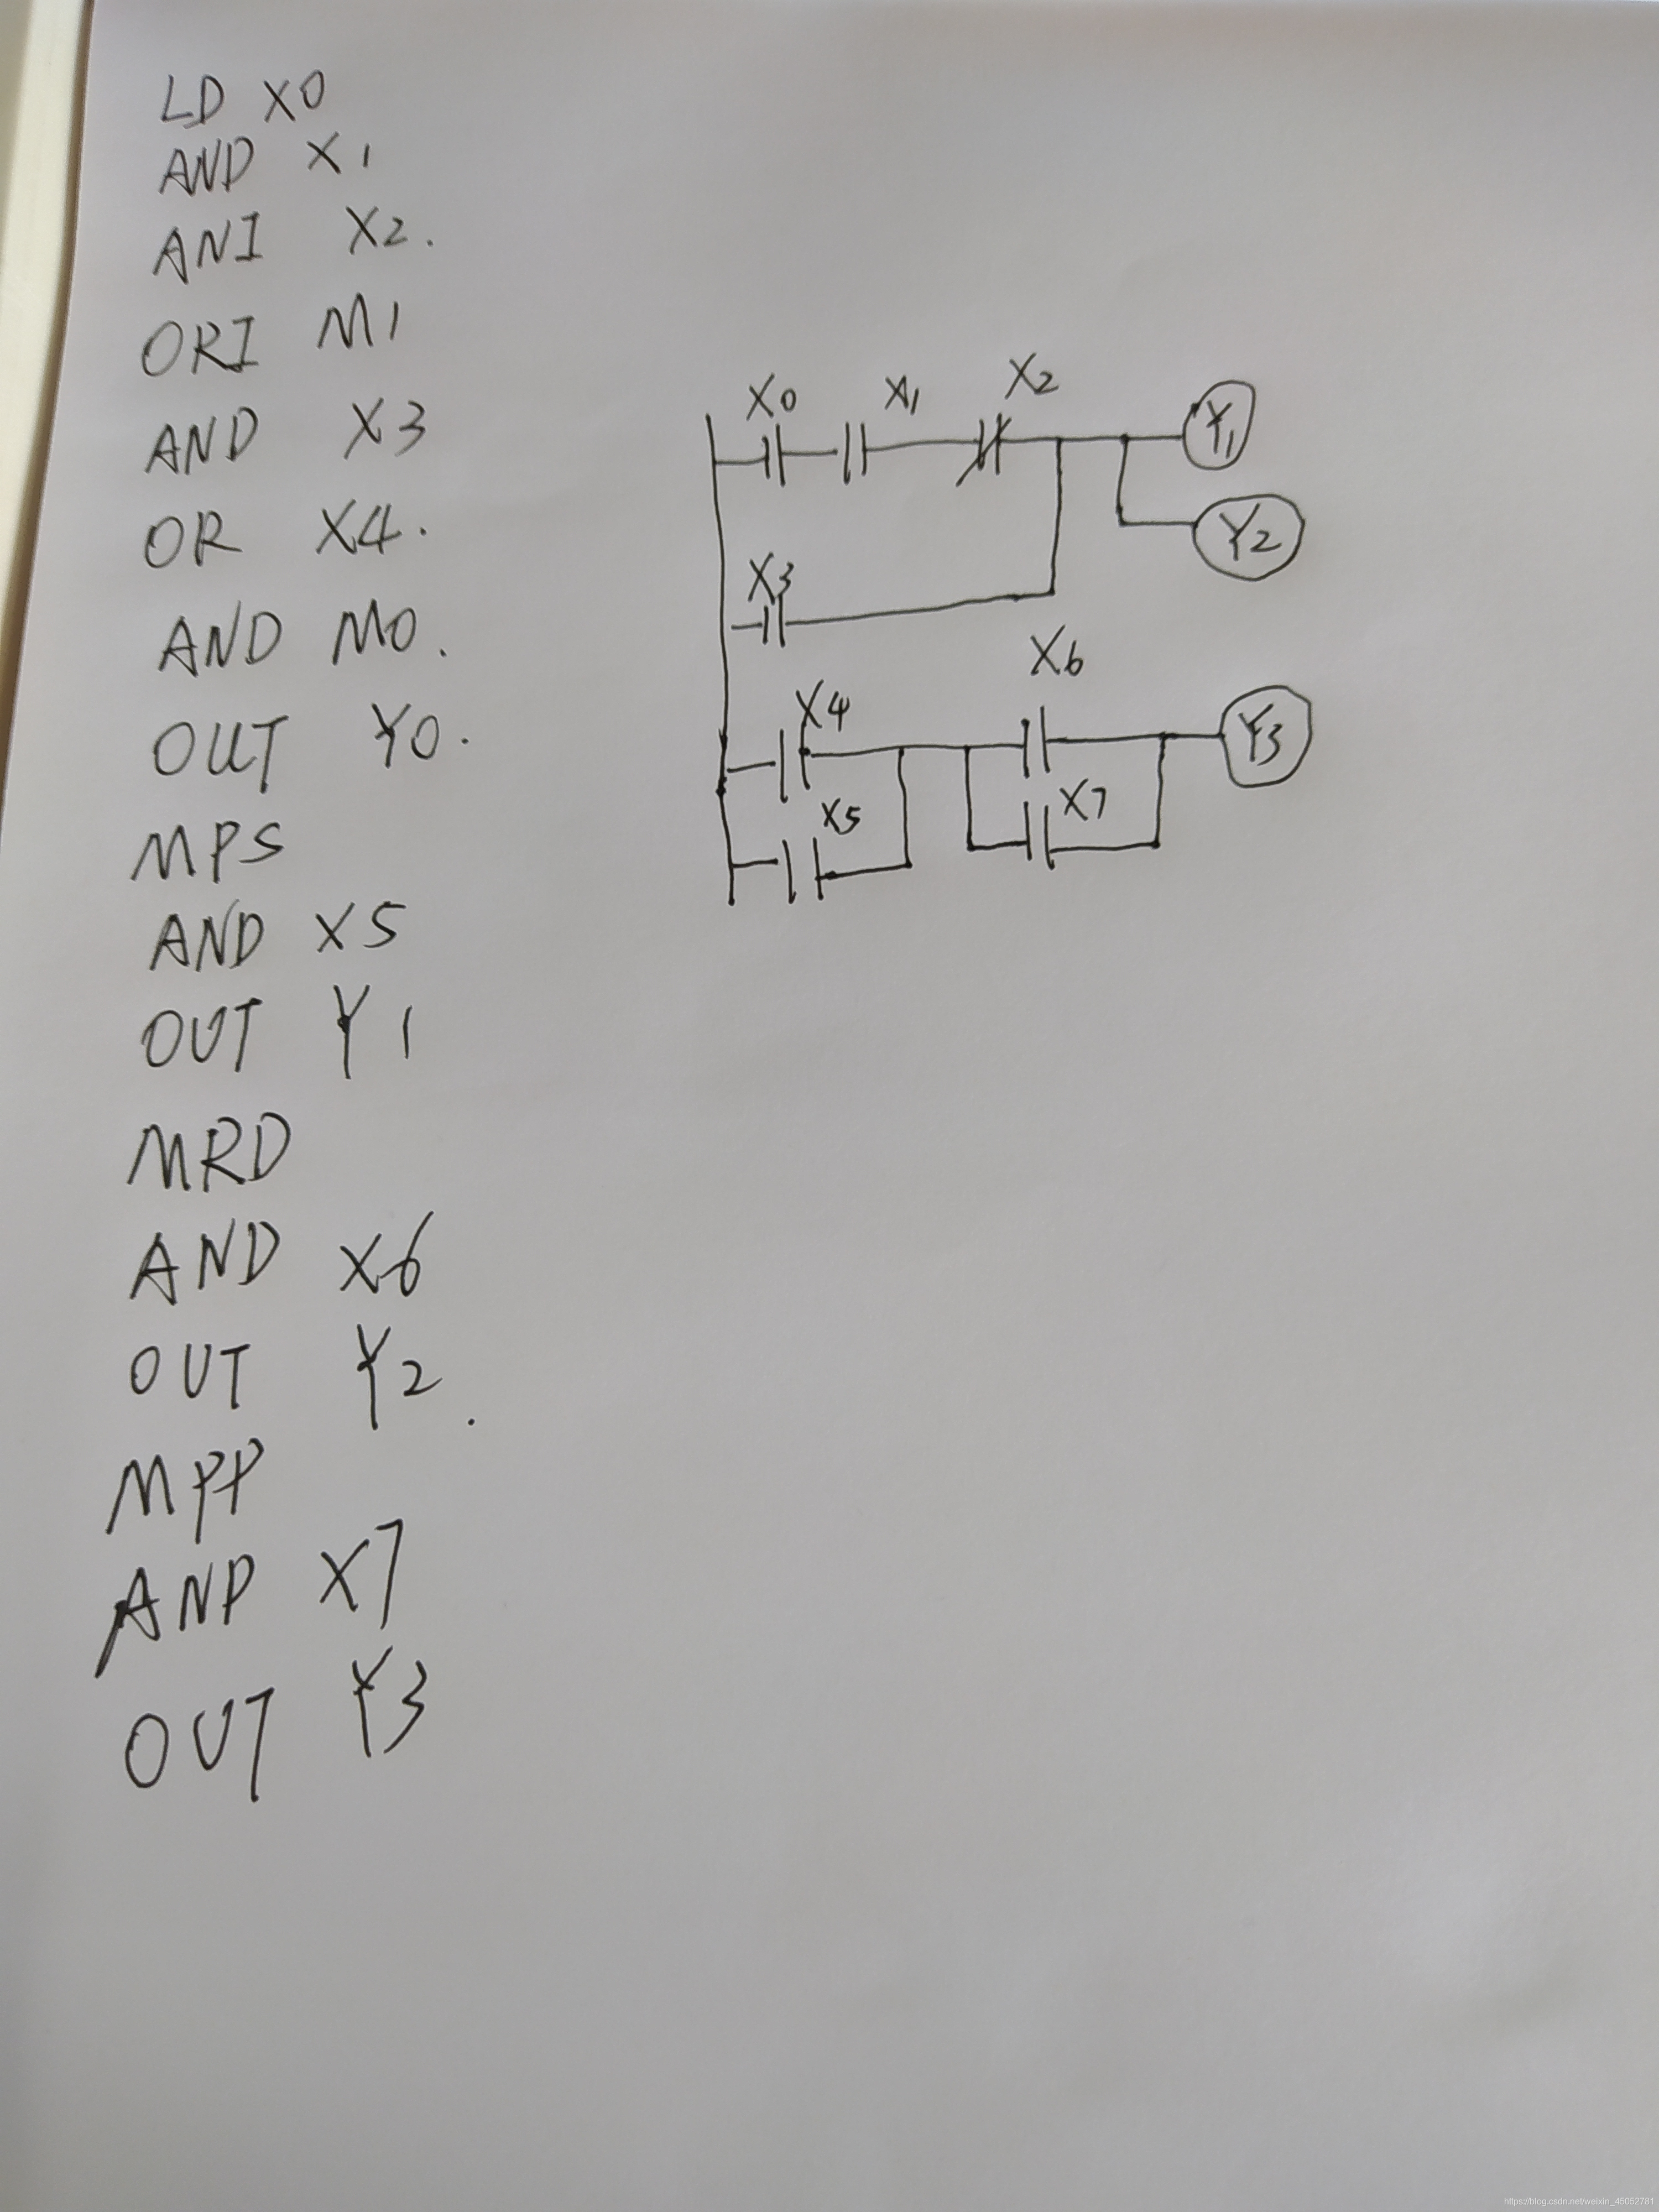 LD X0
AND X1
ANI X2.
ORI M1
AND X3
OR X4.
AND M0.
OUT Y0.
MPS
AND X5
OUT Y1
MRD
AND X6
OUT Y2.
MPP
AND X7
OUT Y3
X0 X1 X2
Y1
Y2
X3
X6
X4
Y3
X7
X5
https://blog.csdn.net/weixin_45052781